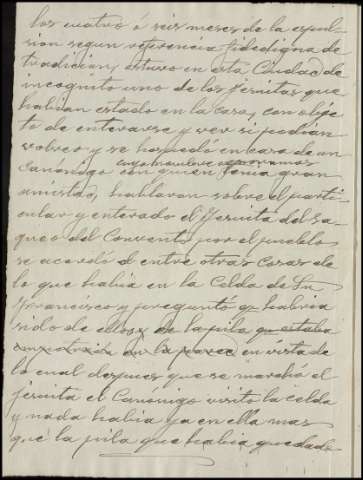 los cuatro ó seis meses de la expul-
sion segun referencia fidedigna de
tradicion, estuvo en esta Ciudad de
incognito uno de los Jesuitas que
habian estado en la casa, con obje-
to de enterarse y ver si podian
volver y se hospedó en casa de un
cuyo nombre ignoramos
canónigo con quien tenia gran
amistad, hablaron sobre el parti-
cular y enterado el Jesuita del sa-
queo del Convento por el pueblo
se acordó de entre otras cosas de
lo que habia en la Celda de Sn
Francisco y preguntó q habria
sido de ellos y de la pila que estaba
en la pared en vista de
lo cual despues que se marchó el
jesuita el Canonigo visitó la celda
y nada habia ya en ella mas
que la pila que habia quedado